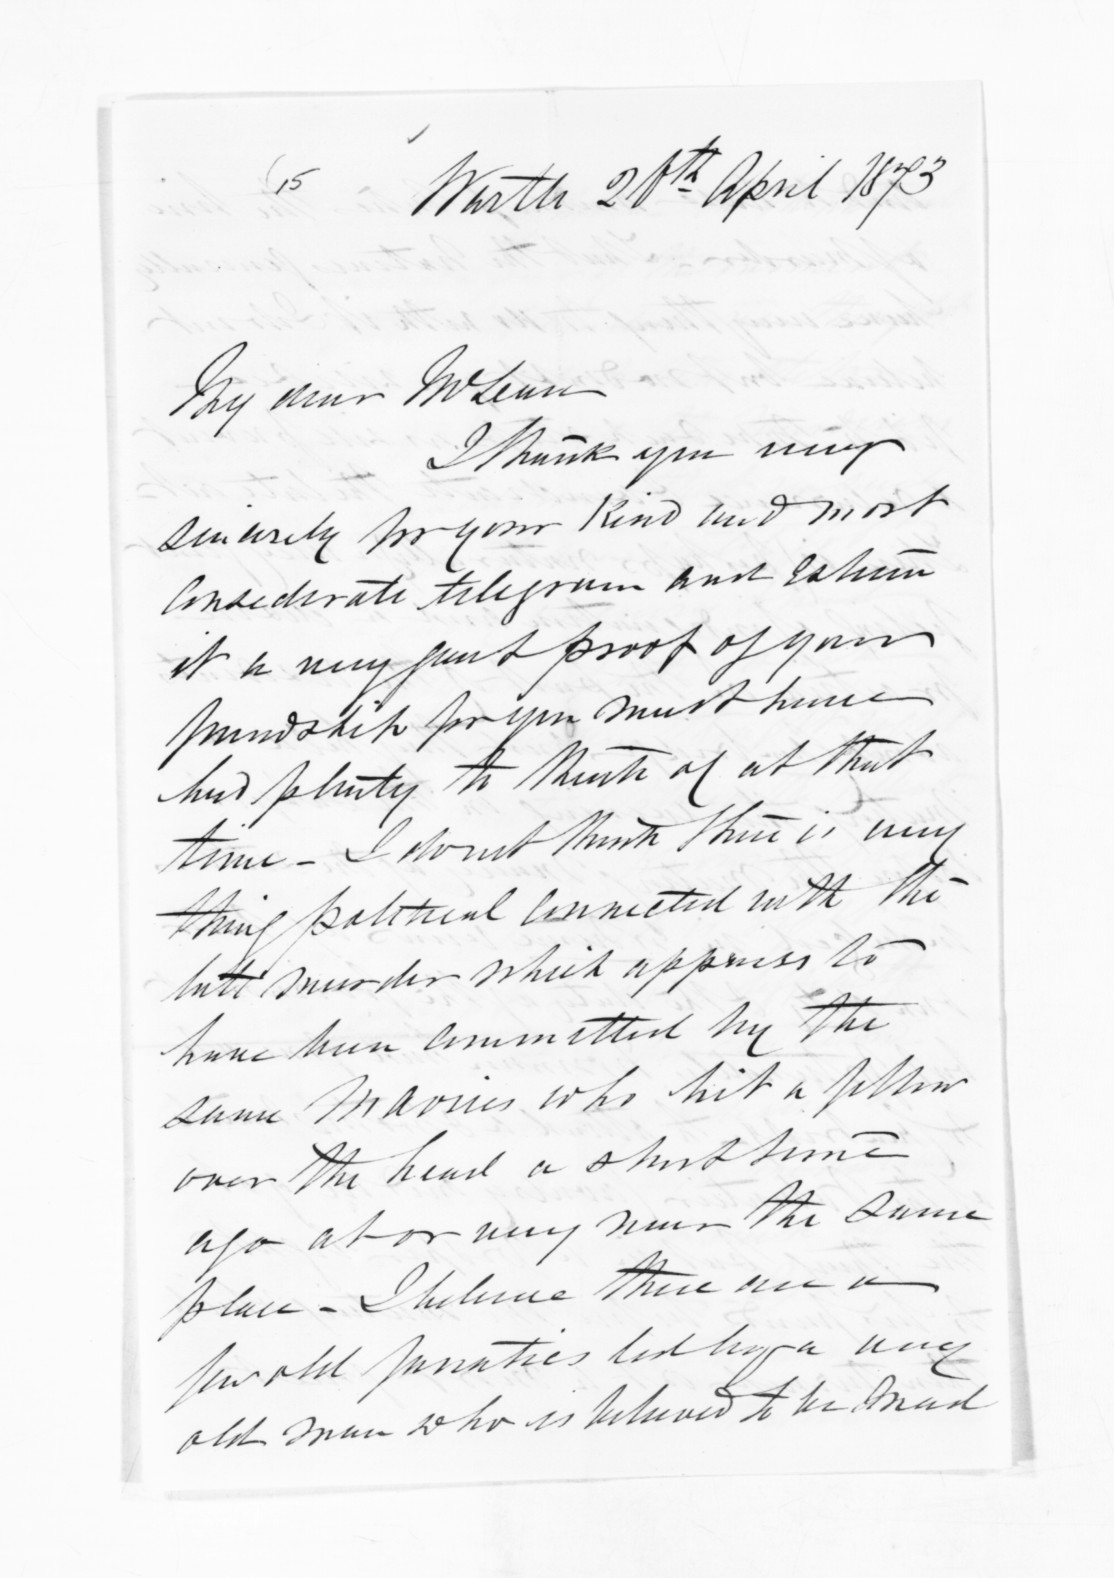 15
26th April 1873
My dear McLean
I thank you very
sincerely for your kind and most
considerate telegram and esteem
it a very great proof of your
friendship for you must have
had plenty to think of at that
time - I do not think there is any
thing political connected with the
late murder which appears to
have been committed by the
same Maories who hit a fellow
over the head a short time
ago at or very near the same
place - I believe there are a
few old fanatics led by a very
old man who is believed to be mad